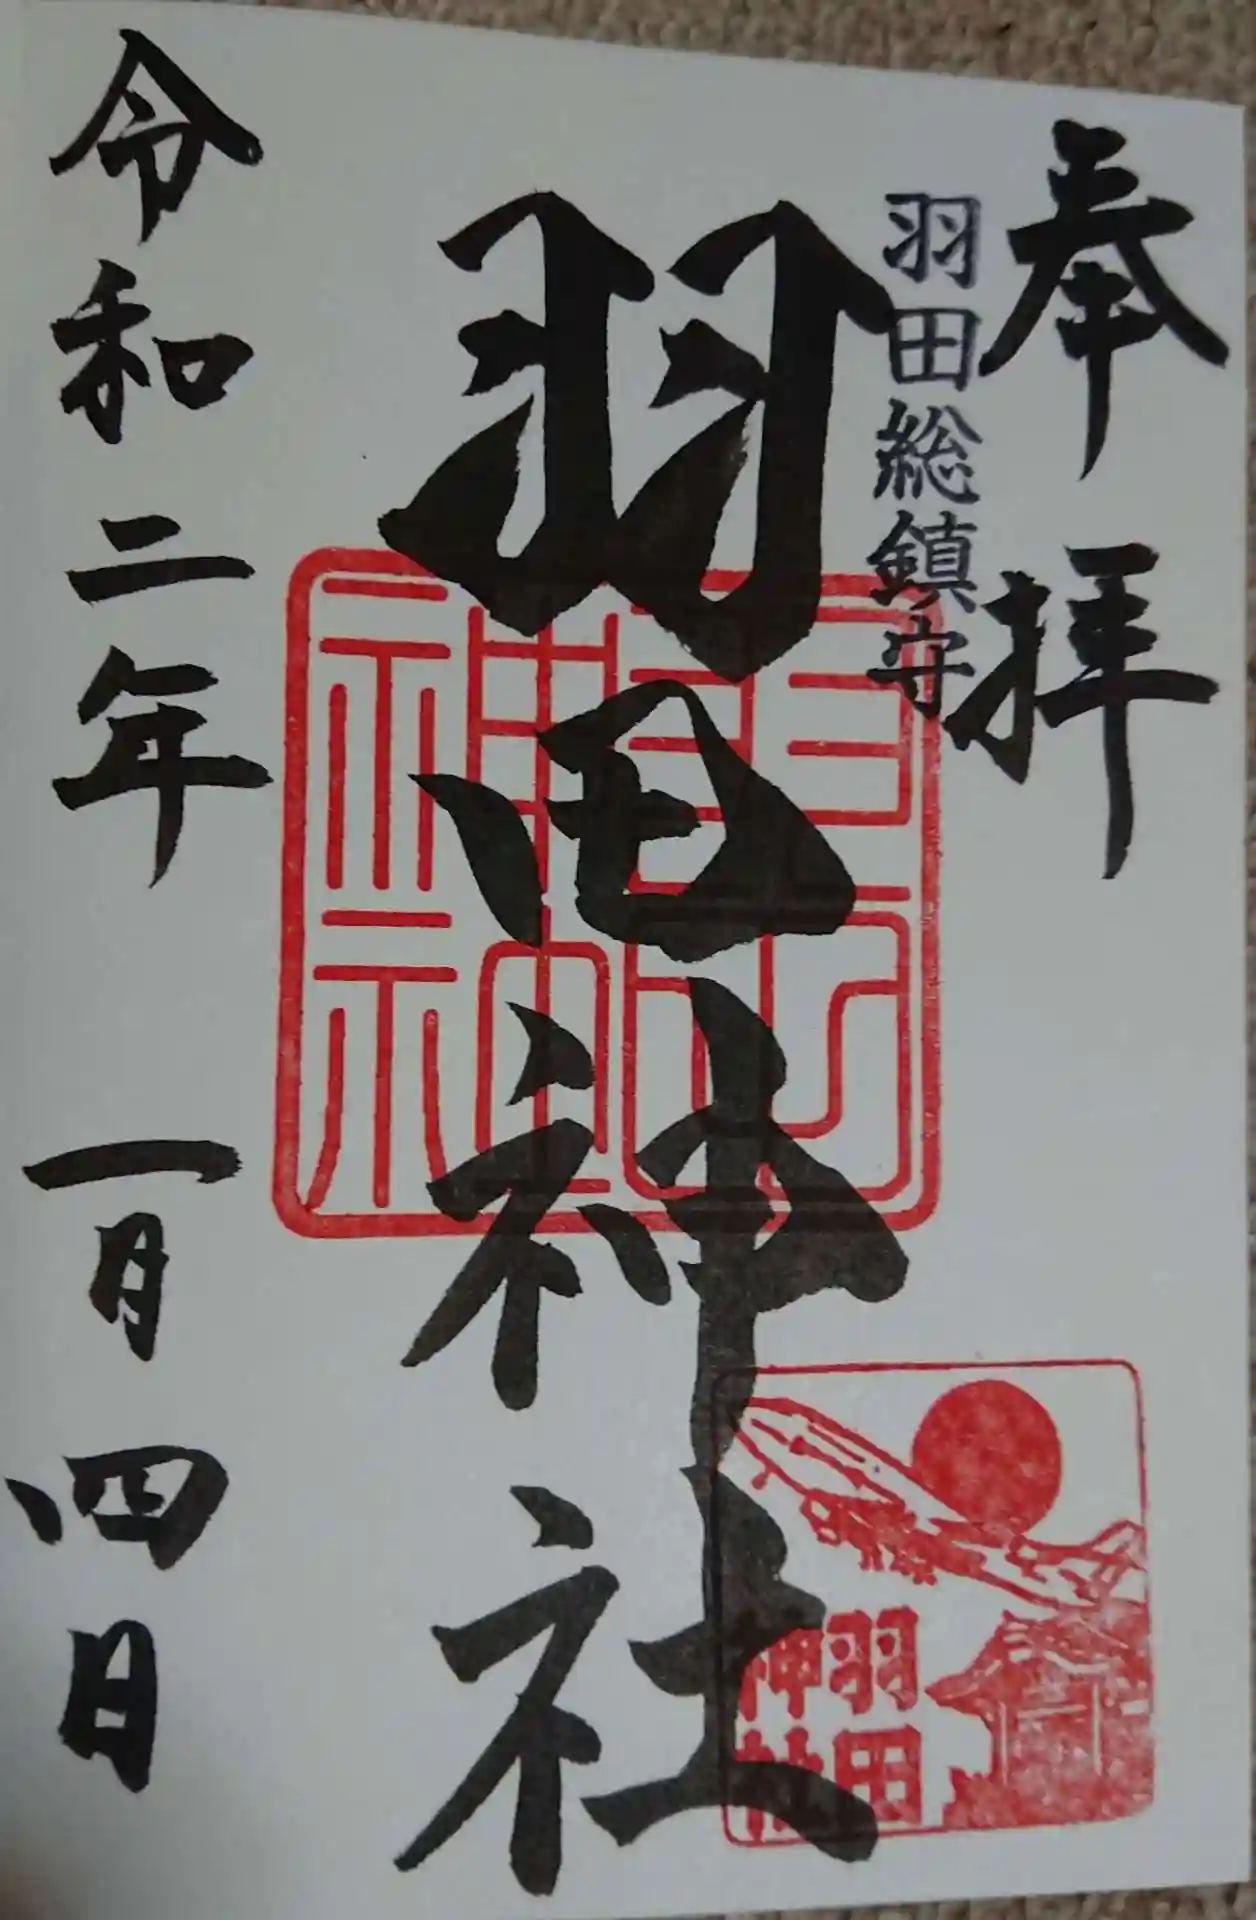 奉拝
羽田総鎮守
羽田神社
令和二年 一月四日
羽田
神社